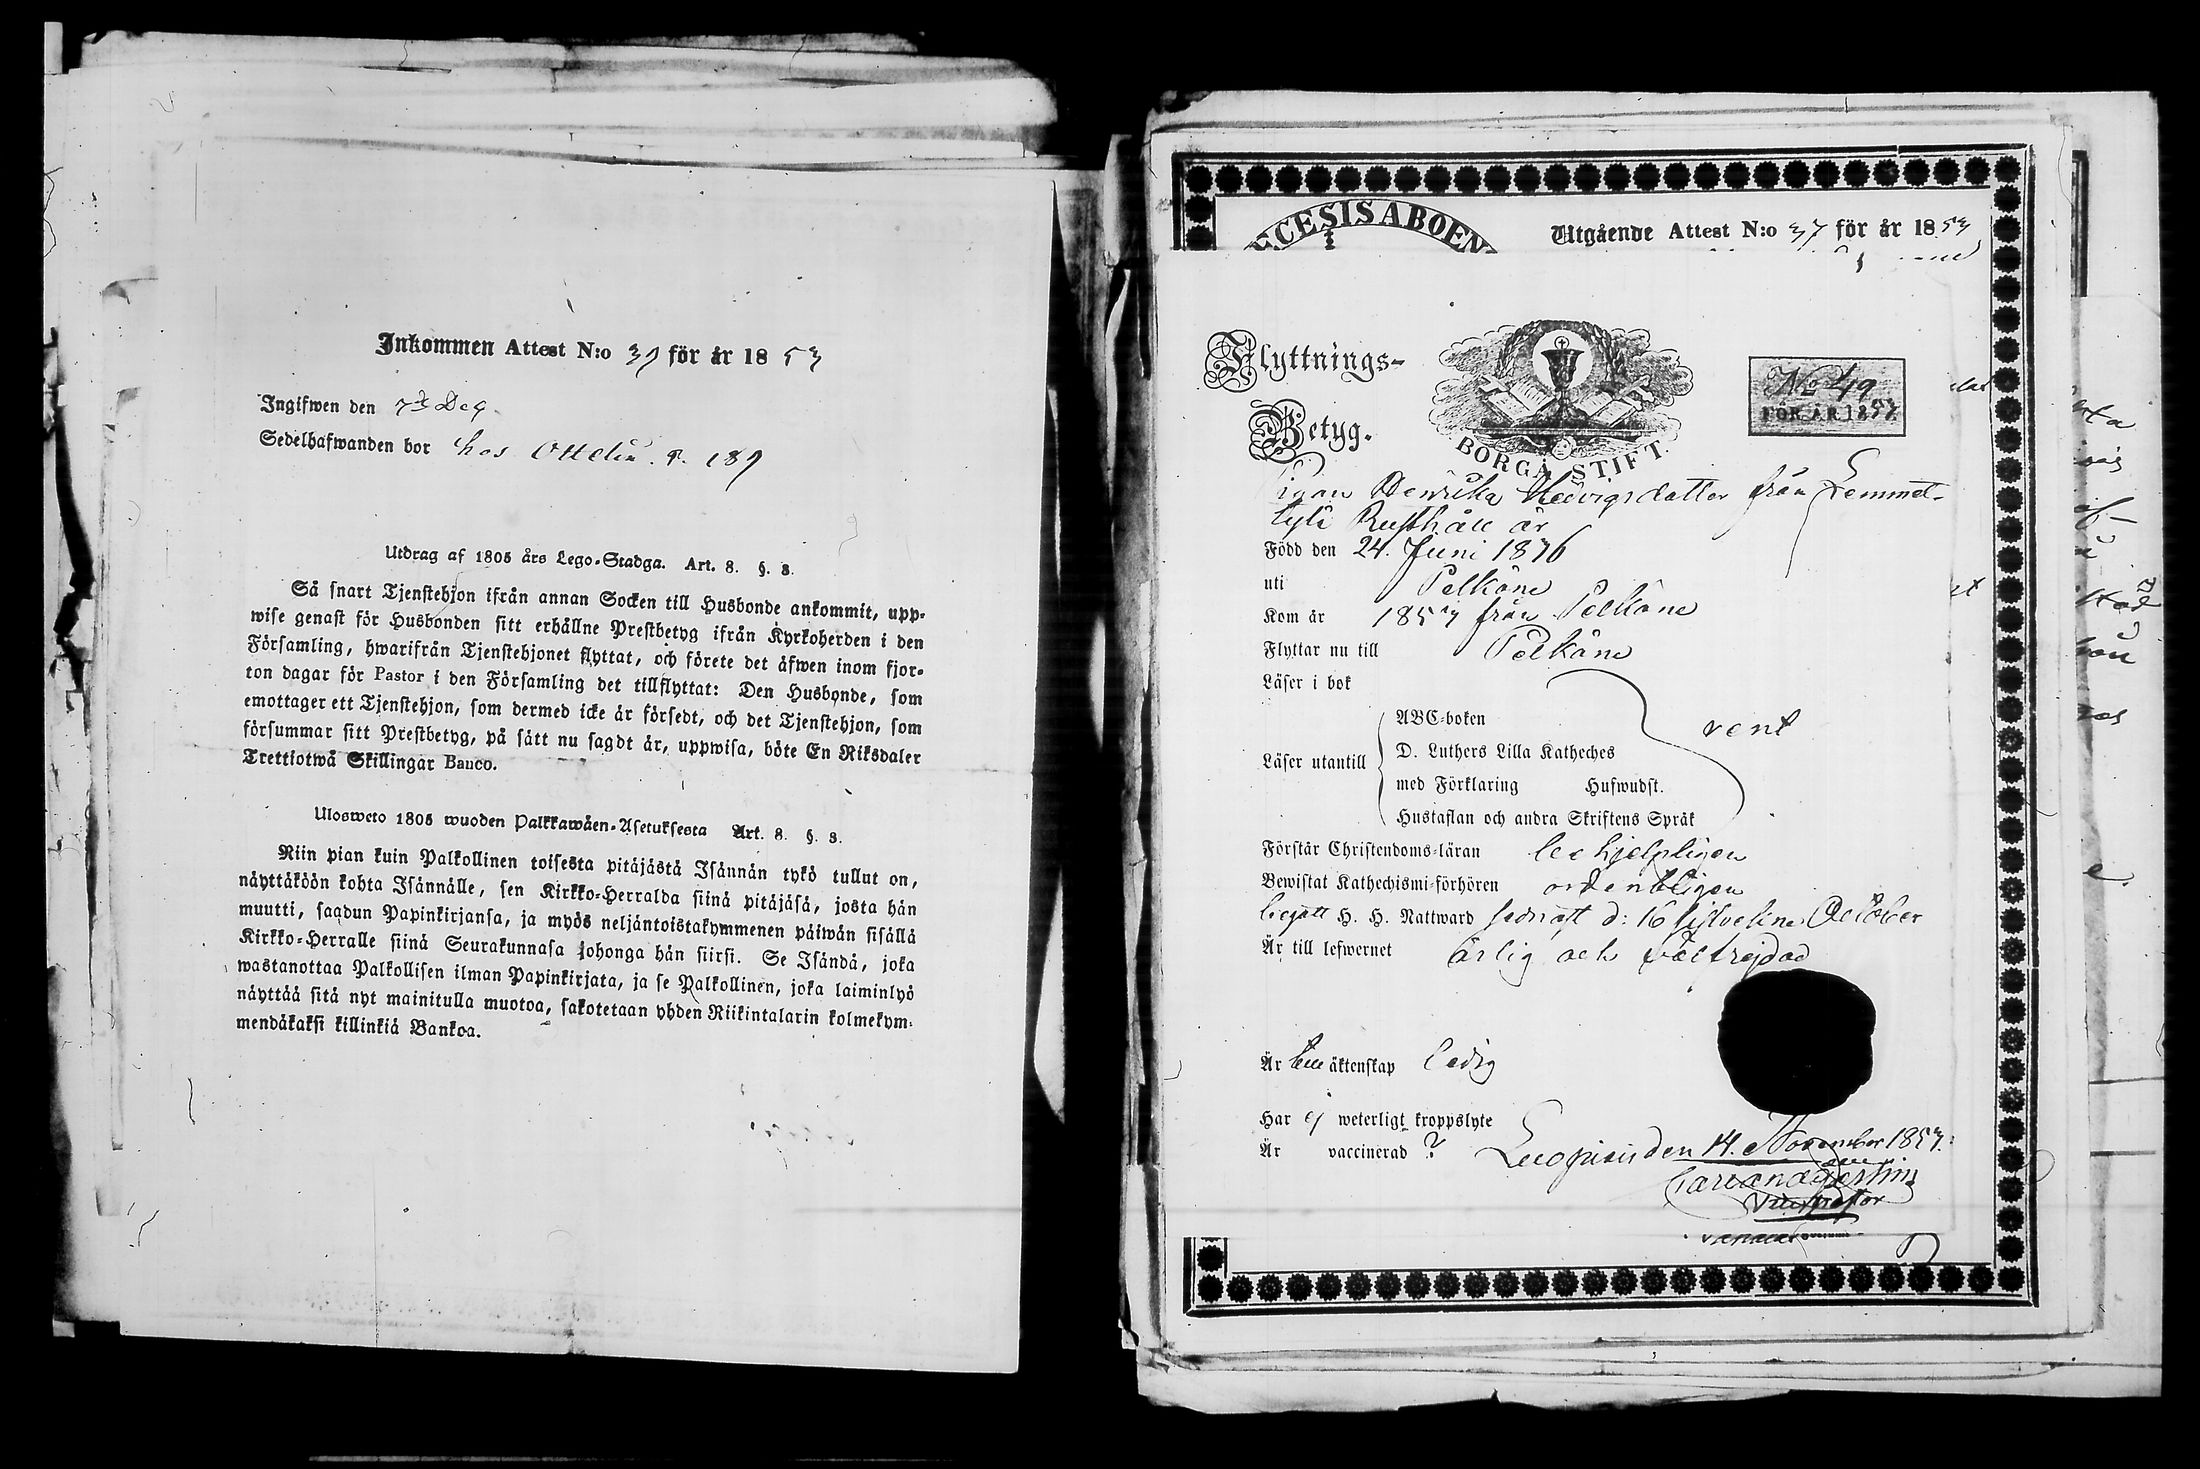 Inkommen Attest N:o 37 för år 1853
Ingifwen den 7 Dec.
Sedelhafwanden bor hos Ottelin. P. 189
Utdrag af 1805 års Lego-Stadga. Art. 8. §. 3.
Så snart Tjenstehjon ifrån annan Socken till Husbonde ankommit, upp-
wise genast för Husbonden sitt erhållne Prestbetyg ifrån Kyrkoherden i den
Församling, hwarifrån Tjenstehjonet flyttat, och förete det äfwen inom fjor-
ton dagar för Pastor i den Församling det tillflyttat: Den Husbonde, som
emottager ett Tjenstehjon, som dermed icke är försedt, och det Tjenstehjon, som
försummar sitt Prestbetyg, på sätt nu sagdt är, uppwisa, böte En Riksdaler
Trettiotwå Skillingar Banco.
Ulosweto 1805 wuoden Palkkawäen-Asetuksesta Art. 8. §. 3.
Niin pian kuin Palkollinen toisesta pitäjästä Isännän tykö tullut on,
näyttäköön kohta Isännälle, sen Kirkko-Herralda siinä pitäjäsä, josta hän
muutti, saadun Papinkirjansa, ja myös neljäntoistakymmenen päiwän sisällä
Kirkko-Herralle siinä Seurakunnasa johonga hän siirsi. Se Isändä, joka
wastanottaa Palkollisen ilman Papinkirjata, ja se Palkollinen, joka laiminlyö
näyttää sitä nyt mainitulla muotoa, sakotetaan yhden Riikintalarin kolmekym-
mendäkaksi killinkiä Bankoa.
ECESIS ABOEN
Utgående Attest N:o 37 för år 1853
Flyttnings-
Betyg.
BORGÅ STIFT.
No 49
FÖR ÅR 1853
Pigan Henrika Hedvigsdotter från Lemmet-
tylä Rusthåll är
Född den 24. Juni 1836
uti Pelkäne
Kom år 1853 från Pelkäne
Flyttar nu till Pelkäne
Läser i bok
ABC-boken
rent
Läser utantill
D. Luthers Lilla Katheches
med Förklaring Hufwudst.
Hustaflan och andra Skriftens Språk
Förstår Christendoms-läran behjelpligen
Bewistat Kathechismi-förhören ordentligen
begått H. H. Nattward sednast d: 16 sistvekne October
Är till lefwernet ärlig och välfrejdad
Är till äktenskap ledig
Har ej weterligt kroppslyte
Är vaccinerad ?
Luopiois den 14. November 1853.
Vice pastor